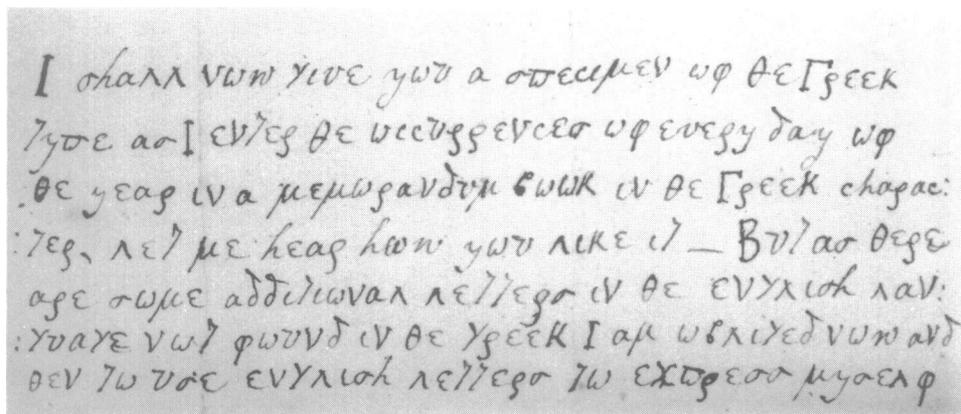 I σhαλλ νωw γιυε yωυ α σπεcιμεν ωφ θε Γρεεκ
τyπε ασ I εντερ θε ωccυρρενcεσ ωφ ευερy δαy ωφ
θε yεαρ ιν α μεμωρανδυμ βωωκ ιν θε Γρεεκ chαραc:
:τερ, λετ με hεαρ hωw yωυ λικε ιτ — Βυτ ασ θερε
αρε σωμε αδδιτιωναλ λεττερσ ιν θε ενγλισh λαν:
:γυαγε νωτ φωυνδ ιν θε γρεεκ I αμ ωβλιγεδ νωw ανδ
θεν τω υσε ενγλισh λεττερσ τω εχπρεσσ μyσελφ